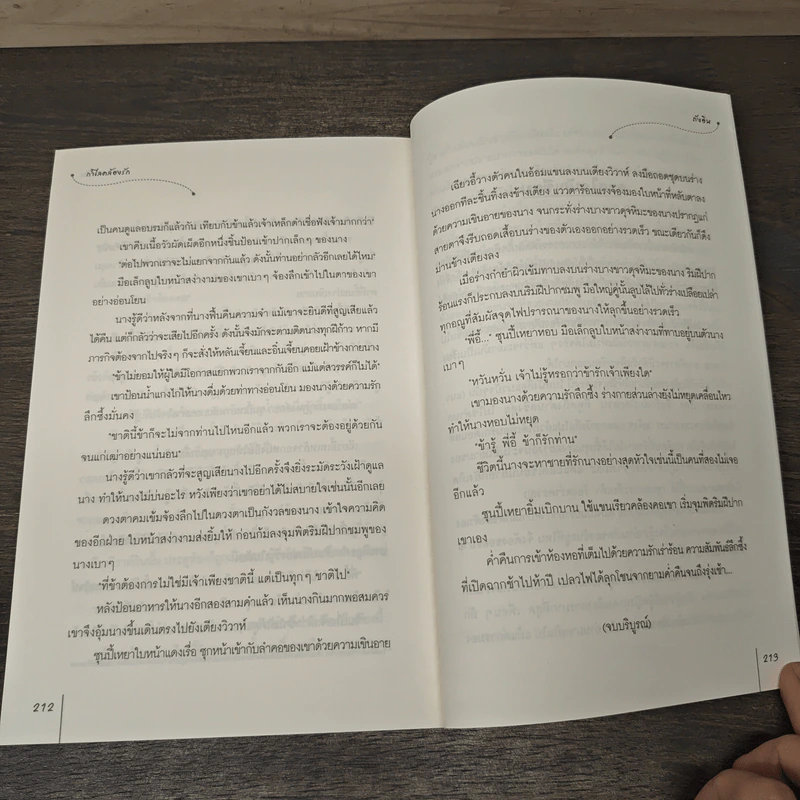 กำไลคล้องรัก
เป็นคนดูแลอบรมก็แล้วกัน เทียบกับข้าแล้วเจ้าเหล็กดำเชื่อฟังเจ้ามากกว่า"
เขาคีบเนื้อวัวผัดเผ็ดอีกหนึ่งชิ้นป้อนเข้าปากเล็กๆ ของนาง
"ต่อไปพวกเราจะไม่แยกจากกันอีก ดังนั้นท่านอย่ากลัวอีกเลยได้ไหม"
มือเล็กลูบใบหน้าสง่างามของเขาเบาๆ จ้องลึกเข้าไปในตาของเขา
อย่างอ่อนโยน
นางรู้ดีว่าหลังจากที่นางฟื้นคืนความจำ แม้เขาจะยินดีที่สูญเสียแล้ว
ได้คืน แต่ก็กลัวว่าจะเสียไปอีกครั้ง ดังนั้นจึงมักจะตามติดนางทุกฝีก้าว หากมี
ภารกิจต้องจากไปจริงๆ ก็จะสั่งให้หลันเจี้ยนและอิ่นเจี้ยนคอยเฝ้าข้างกายนาง
"ข้าไม่ยอมให้ผู้ใดมีโอกาสแยกพวกเราจากกันอีก แม้แต่สวรรค์ก็ไม่ได้"
เขาป้อนน้ำแกงไก่ให้นางดื่มด้วยท่าทางอ่อนโยน มองนางด้วยความรัก
ลึกซึ้งมั่นคง
"ชาตินี้ข้าก็จะไม่จากท่านไปไหนอีกแล้ว พวกเราจะต้องอยู่ด้วยกัน
จนแก่เฒ่าอย่างแน่นอน"
นางรู้ดีว่าเขากลัวที่จะสูญเสียนางไปอีกครั้งจึงยิ่งระมัดระวังเฝ้าดูแล
นาง ทำให้นางไม่บ่นอะไร หวังเพียงว่าเขาอย่าได้ไม่สบายใจเช่นนั้นอีกเลย
ดวงตาคมเข้มจ้องลึกไปในดวงตาเป็นกังวลของนาง เข้าใจความคิด
ของอีกฝ่าย ใบหน้าสง่างามส่งยิ้มให้ ก่อนก้มลงจุมพิตริมฝีปากชมพูของ
นางเบาๆ
"ที่ข้าต้องการไม่ใช่มีเจ้าเพียงชาตินี้ แต่เป็นทุกๆ ชาติไป"
หลังป้อนอาหารให้นางอีกสองสามคำแล้ว เห็นนางกินมากพอสมควร
เขาจึงอุ้มนางขึ้นเดินตรงไปยังเตียงวิวาห์
ซุนปี้เหยาใบหน้าแดงเรื่อ ซุกหน้าเข้ากับลำคอของเขาด้วยความเขินอาย
212
กัจฉิน
เฉียวอี้วางตัวคนในอ้อมแขนลงบนเตียงวิวาห์ ลงมือถอดชุดบนร่าง
นางออกทีละชิ้นทิ้งลงข้างเตียง แววตาร้อนแรงจ้องมองใบหน้าที่หลับตาลง
ด้วยความเขินอายของนาง จนกระทั่งร่างบางขาวดุจหิมะของนางปรากฏแก่
สายตาจึงรีบถอดเสื้อบนร่างของตัวเองออกอย่างรวดเร็ว ขณะเดียวกันก็ดึง
ม่านข้างเตียงลง
เมื่อร่างกำยำผิวเข้มทาบลงบนร่างบางขาวดุจหิมะของนาง ริมฝีปาก
ร้อนแรงก็ประกบลงบนริมฝีปากชมพู มือใหญ่คู่นั้นลูบไล้ไปทั่วร่างเปลือยเปล่า
ทุกอณูที่สัมผัสจุดไฟปรารถนาของนางให้ลุกขึ้นอย่างรวดเร็ว
"พี่อี้..." ซุนปี้เหยาหอบ มือเล็กลูบใบหน้าสง่างามที่ทาบอยู่บนตัวนาง
เบาๆ
"หวันหวั่น เจ้าไม่รู้หรอกว่าข้ารักเจ้าเพียงใด"
เขามองนางด้วยความรักลึกซึ้ง ร่างกายส่วนล่างยังไม่หยุดเคลื่อนไหว
ทำให้นางหอบไม่หยุด
"ข้ารู้ พี่อี้ ข้าก็รักท่าน"
ชีวิตนี้นางจะหาชายที่รักนางอย่างสุดหัวใจเช่นนี้เป็นคนที่สองไม่เจอ
อีกแล้ว
ซุนปี้เหยายิ้มเบิกบาน ใช้แขนเรียวคล้องคอเขา เริ่มจุมพิตริมฝีปาก
เขาเอง
ค่ำคืนการเข้าห้องหอที่เต็มไปด้วยความรักเร่าร้อน ความสัมพันธ์ลึกซึ้ง
ที่เปิดฉากช้าไปห้าปี เปลวไฟได้ลุกโชนจากยามค่ำคืนจนถึงรุ่งเช้า...
(จบบริบูรณ์)
213